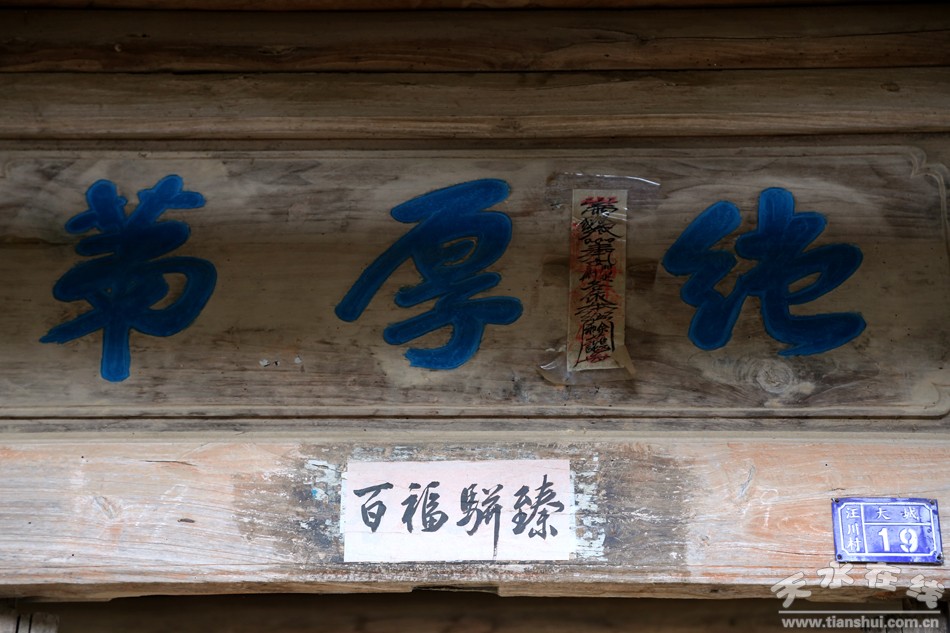 纯厚第
百福駢臻
汪川村
大城
19
天水在线
www.tianshui.com.cn